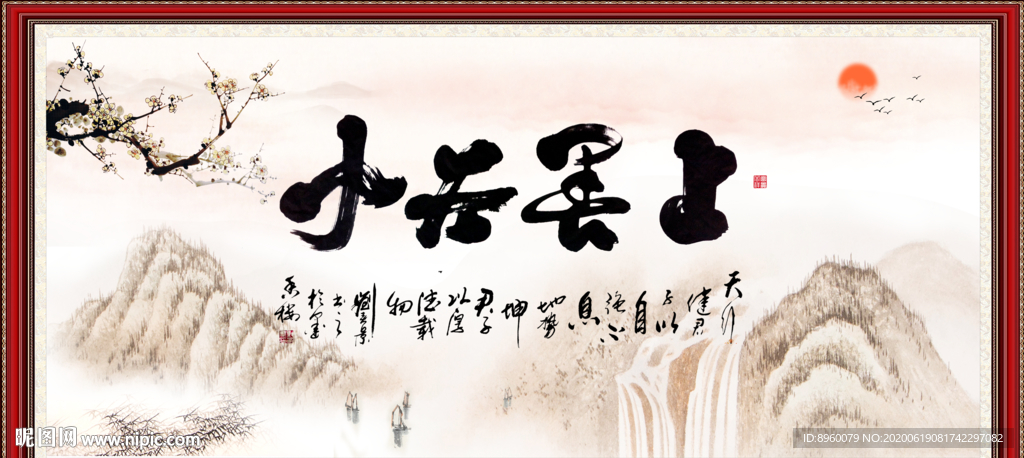 上善若水
天行
健君
子以
自
強不
息
地勢
坤
君子
以厚
德載
物
昵图网 www.nipic.com
ID:8960079 NO:20200619081742297082